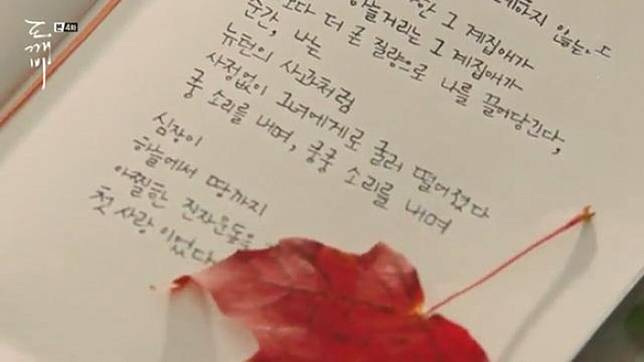 도깨비
4회
하지 않는
그 계집애가
거리는 그 계집애가
보다 더 큰 질량으로 나를 끌어당긴다,
순간, 나는
뉴턴의 사과처럼
사정없이 그녀에게로 굴러 떨어졌다
쿵 소리를 내며, 쿵쿵 소리를 내며
심장이
하늘에서 땅까지
아찔한 진자운동을
첫 사랑 이었다